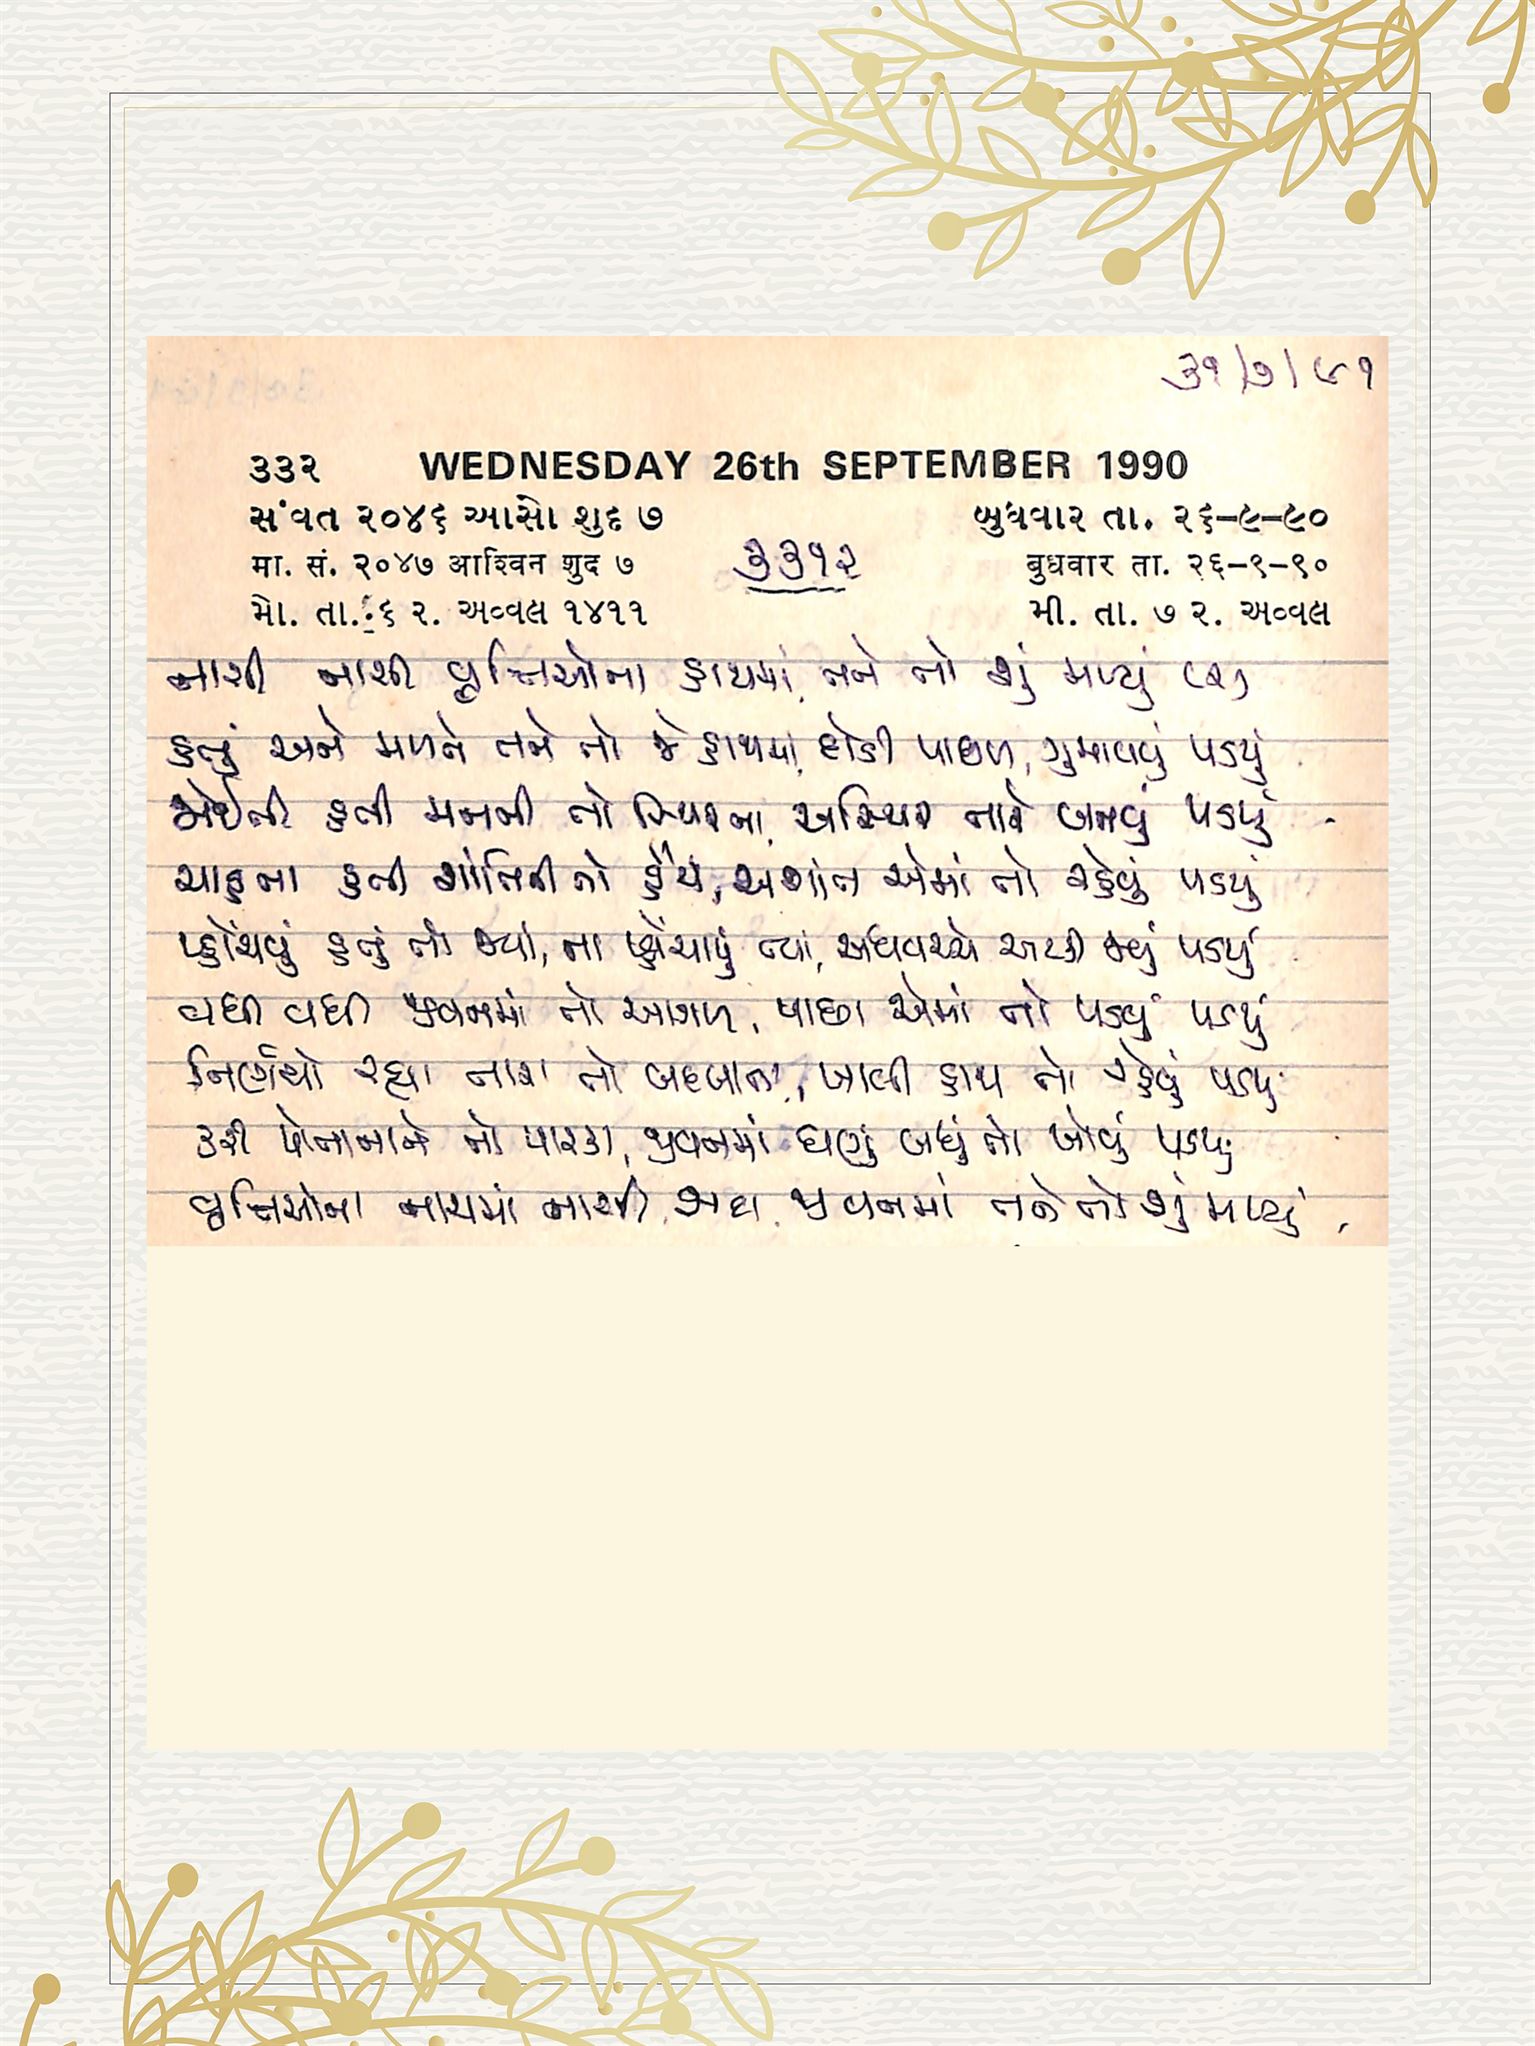 ૩૧/૭/૯૧
૩૩૨ WEDNESDAY 26th SEPTEMBER 1990
સંવત ૨૦૪૬ આસો શુદ ૭ બુધવાર તા. ૨૬-૯-૯૦
मा. सं. २०४७ आश्विन शुद ७ बुधवार ता. २६-९-९०
મો. તા. ૬ ર. અવ્વલ ૧૪૧૧ મી. તા. ૭ ર. અવ્વલ
૩૩૧૨
નાચી નાચી વૃત્તિઓના હાથમાં, તને તો શું મળ્યું (૨)
હતું અને મળને તને તો જે હાથમાં, દોડી પાછળ, ગુમાવવું પડયું
જોઈતી હતી મનની તો સ્થિરતા, અસ્થિર તારે બનવું પડયું
ચાહના હતી શાંતિની તો હૈયે, અશાંત એમાં તો રહેવું પડયું
પ્હોંચવું હતું તો જ્યાં, ના પ્હોંચાયું ત્યાં, અધવચ્ચે અટકી જાવું પડયું
વધી વધી જીવનમાં તો આગળ, પાછા એમાં તો પડવું પડયું
નિર્ણયો રહ્યા તારા તો બદલાતા, ખાલી હાથ તો રહેવું પડયું
કરી પોતાનાને તો પારકા, જીવનમાં ઘણું બધું તો ખોવું પડયું
વૃત્તિઓના નાચમાં નાચી સદા જીવનમાં તને તો શું મળ્યું